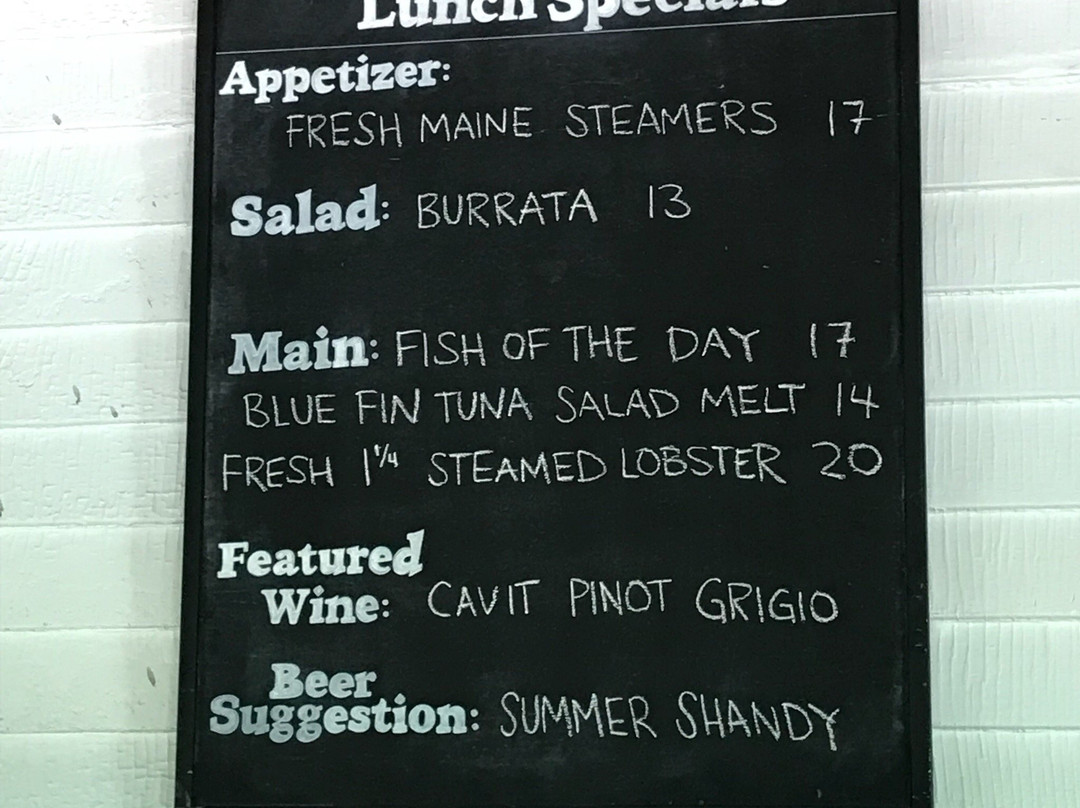 Lunch Specials
Appetizer:
FRESH MAINE STEAMERS 17
Salad: BURRATA 13
Main: FISH OF THE DAY 17
BLUE FIN TUNA SALAD MELT 14
FRESH 1 1/4 STEAMED LOBSTER 20
Featured
Wine: CAVIT PINOT GRIGIO
Beer
Suggestion: SUMMER SHANDY